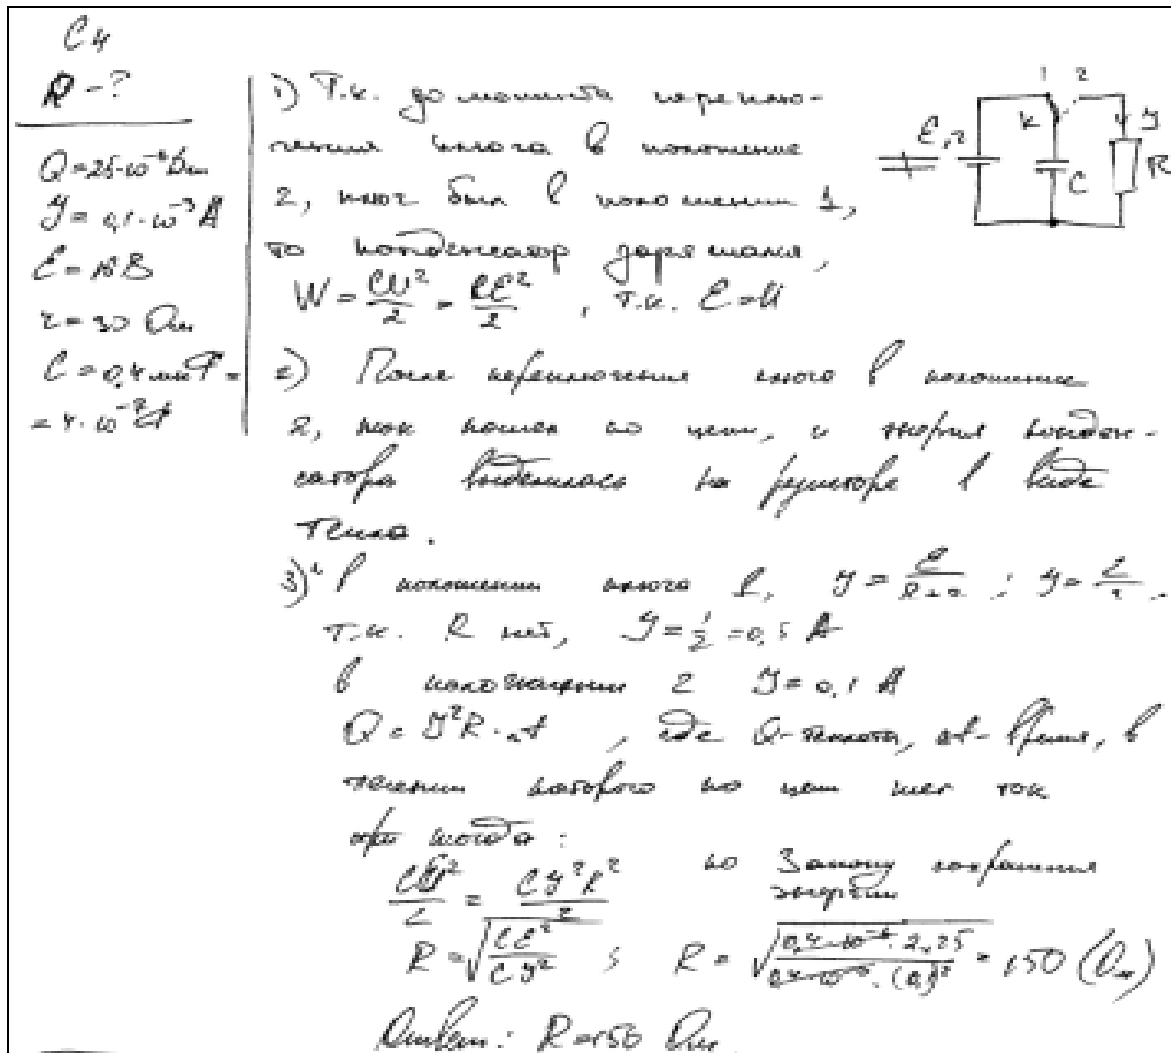 C4
R - ?
Q = 25·10⁻⁶ Дж
I = 0,1·10⁻³ А
r = 30 Ом
C = 0,4 мкФ =
= 4·10⁻⁷ Ф
1) Т.к. до момента переклю-
чения ключа в положение
2, ключ был в положении 1,
то конденсатор заряжался,
W = CU²/2 = Cℰ²/2 , т.к. ℰ = U
1 2
K
ℰ, r
C
I
R
2) После переключения ключа в положение
2, ток пошел по цепи, и энергия конден-
сатора выделилась на резисторе в виде
тепла.
3) В положении ключа 1, I = ℰ/(R+r) ; I = ℰ/r ,
т.к. R нет, I = 1/2 = 0,5 А
в положении 2 I = 0,1 А
Q = I²R·Δt , где Q - теплота, Δt - время, в
течении которого по цепи шел ток
тогда :
CU²/2 = CI²R²/2 по Закону сохранения
энергии
R = √(Cℰ²/CI²) ; R = √(0,4·10⁻⁶·2,25/0,4·10⁻⁶·(0,1)²) = 150 (Ом)
Ответ: R = 150 Ом